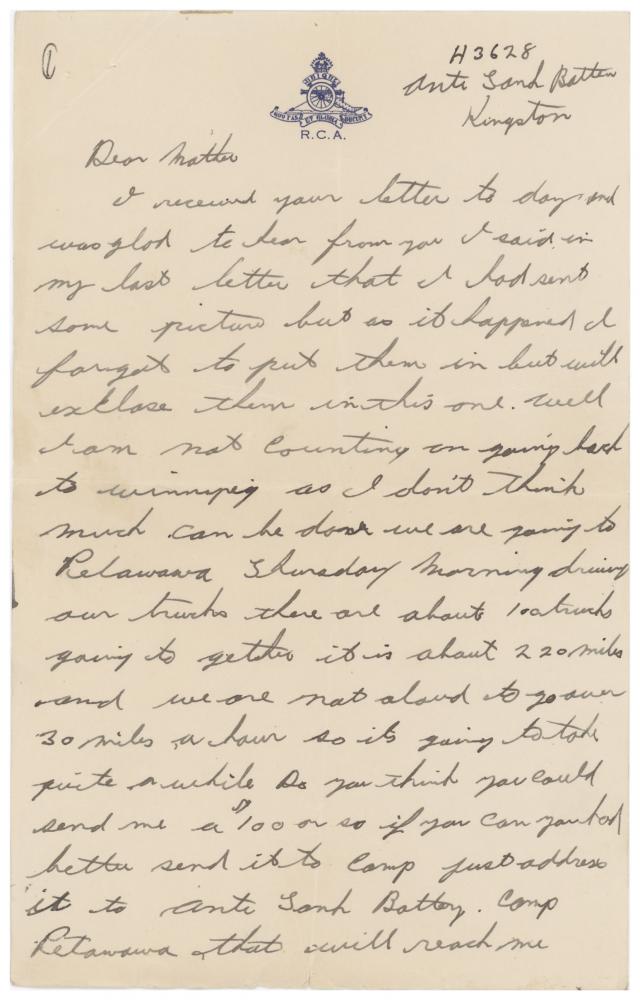 1
H3628
Anti Tank Batten
Kingston
UBIQUE
QUO FAS ET GLORIA DUCUNT
R.C.A.
Dear Mother
I received your letter to day and
was glad to hear from you I said in
my last letter that I had sent
some picture but as it happened I
forgot to put them in but will
exklose them in this one. Well
I am not counting on going back
to winnipeg as I don't think
much can be done we are going to
Petawawa Thursday Morning driving
our trucks there are about 100 trucks
going to gether it is about 220 miles
and we are not aloud to go over
30 miles a hour so its going to take
quite a while Do you think you could
send me a $100 or so if you can you had
better send it to Camp just address
it to Anti Tank Battery. Camp
Petawawa that will reach me